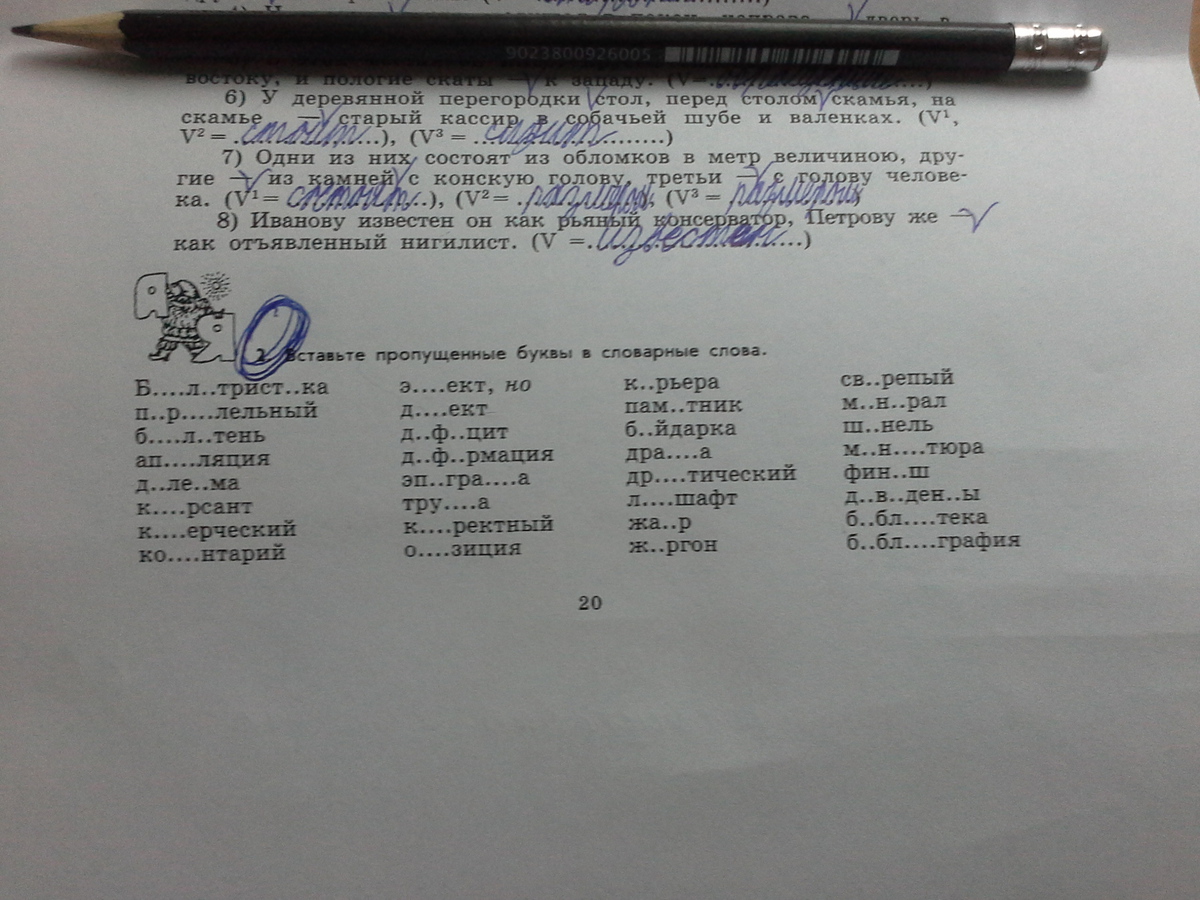 9023800926005
востоку, и пологие скаты — V к западу. (V=
6) У деревянной перегородки V стол, перед столом V скамья, на
скамье — V старый кассир в собачьей шубе и валенках. (V¹,
V² = .стоит...), (V³ = .сидит.........)
7) Одни из них состоят из обломков в метр величиною, дру-
гие — V из камней V с конскую голову, третьи — V с голову челове-
ка. (V¹ = состоят..), (V² = .размером, (V³ = размером
8) Иванову известен он как рьяный консерватор, Петрову же — V
как отъявленный нигилист. (V =.известен...)
2. Вставьте пропущенные буквы в словарные слова.
Б....л..трист..ка э....ект, но к..рьера св..репый
п..р....лельный д....ект пам..тник м..н..рал
б....л..тень д..ф..цит б..йдарка ш..нель
ап....ляция д..ф..рмация дра....а м..н....тюра
д..ле..ма эп..гра....а др....тический фин..ш
к....рсант тру....а л....шафт д..в..ден..ы
к....ерческий к....ректный жа..р б..бл....тека
ко....нтарий о....зиция ж..ргон б..бл....графия
20